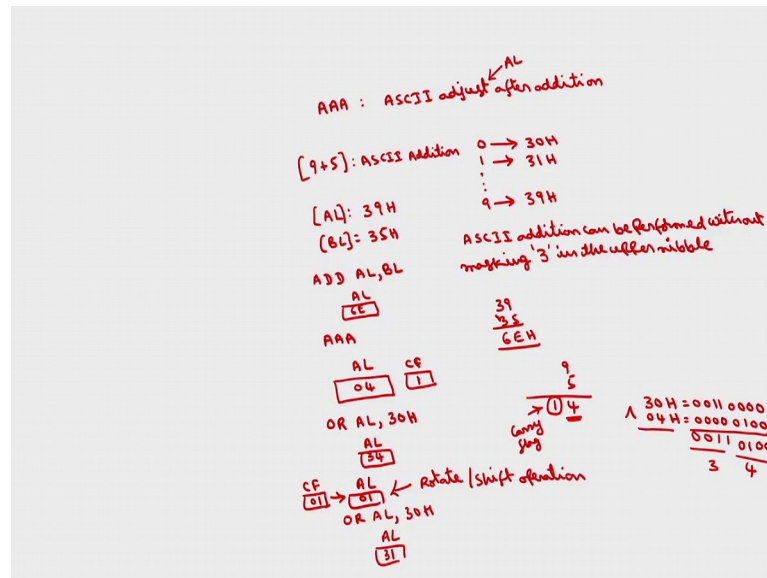 AL
AAA : ASCII adjust after addition
[9+5]: ASCII Addition
0 → 30H
1 → 31H
9 → 39H
[AL]: 39H
[BL]= 35H
ASCII addition can be performed without
masking '3' in the upper nibble
ADD AL, BL
AL
6E
39
35
6EH
AAA
AL CF
04 1
9
5
1 4
Carry
flag
OR AL, 30H
AL
34
∧ 30H = 0011 0000
04H = 0000 0100
0011 0100
3 4
CF AL
01 → 01 ← Rotate / Shift operation
OR AL, 30H
AL
31